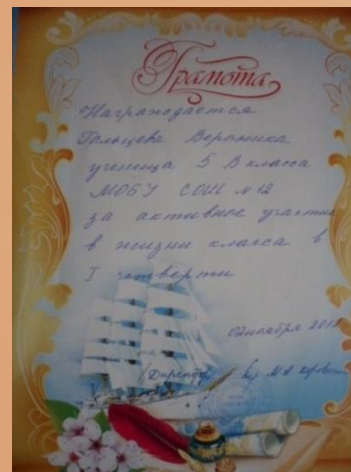 Грамота
Награждается
Гольцева Вероника
ученица 5 В класса
МОБУ СОШ №12
за активное участие
в жизни класса в
I четверти
Директор